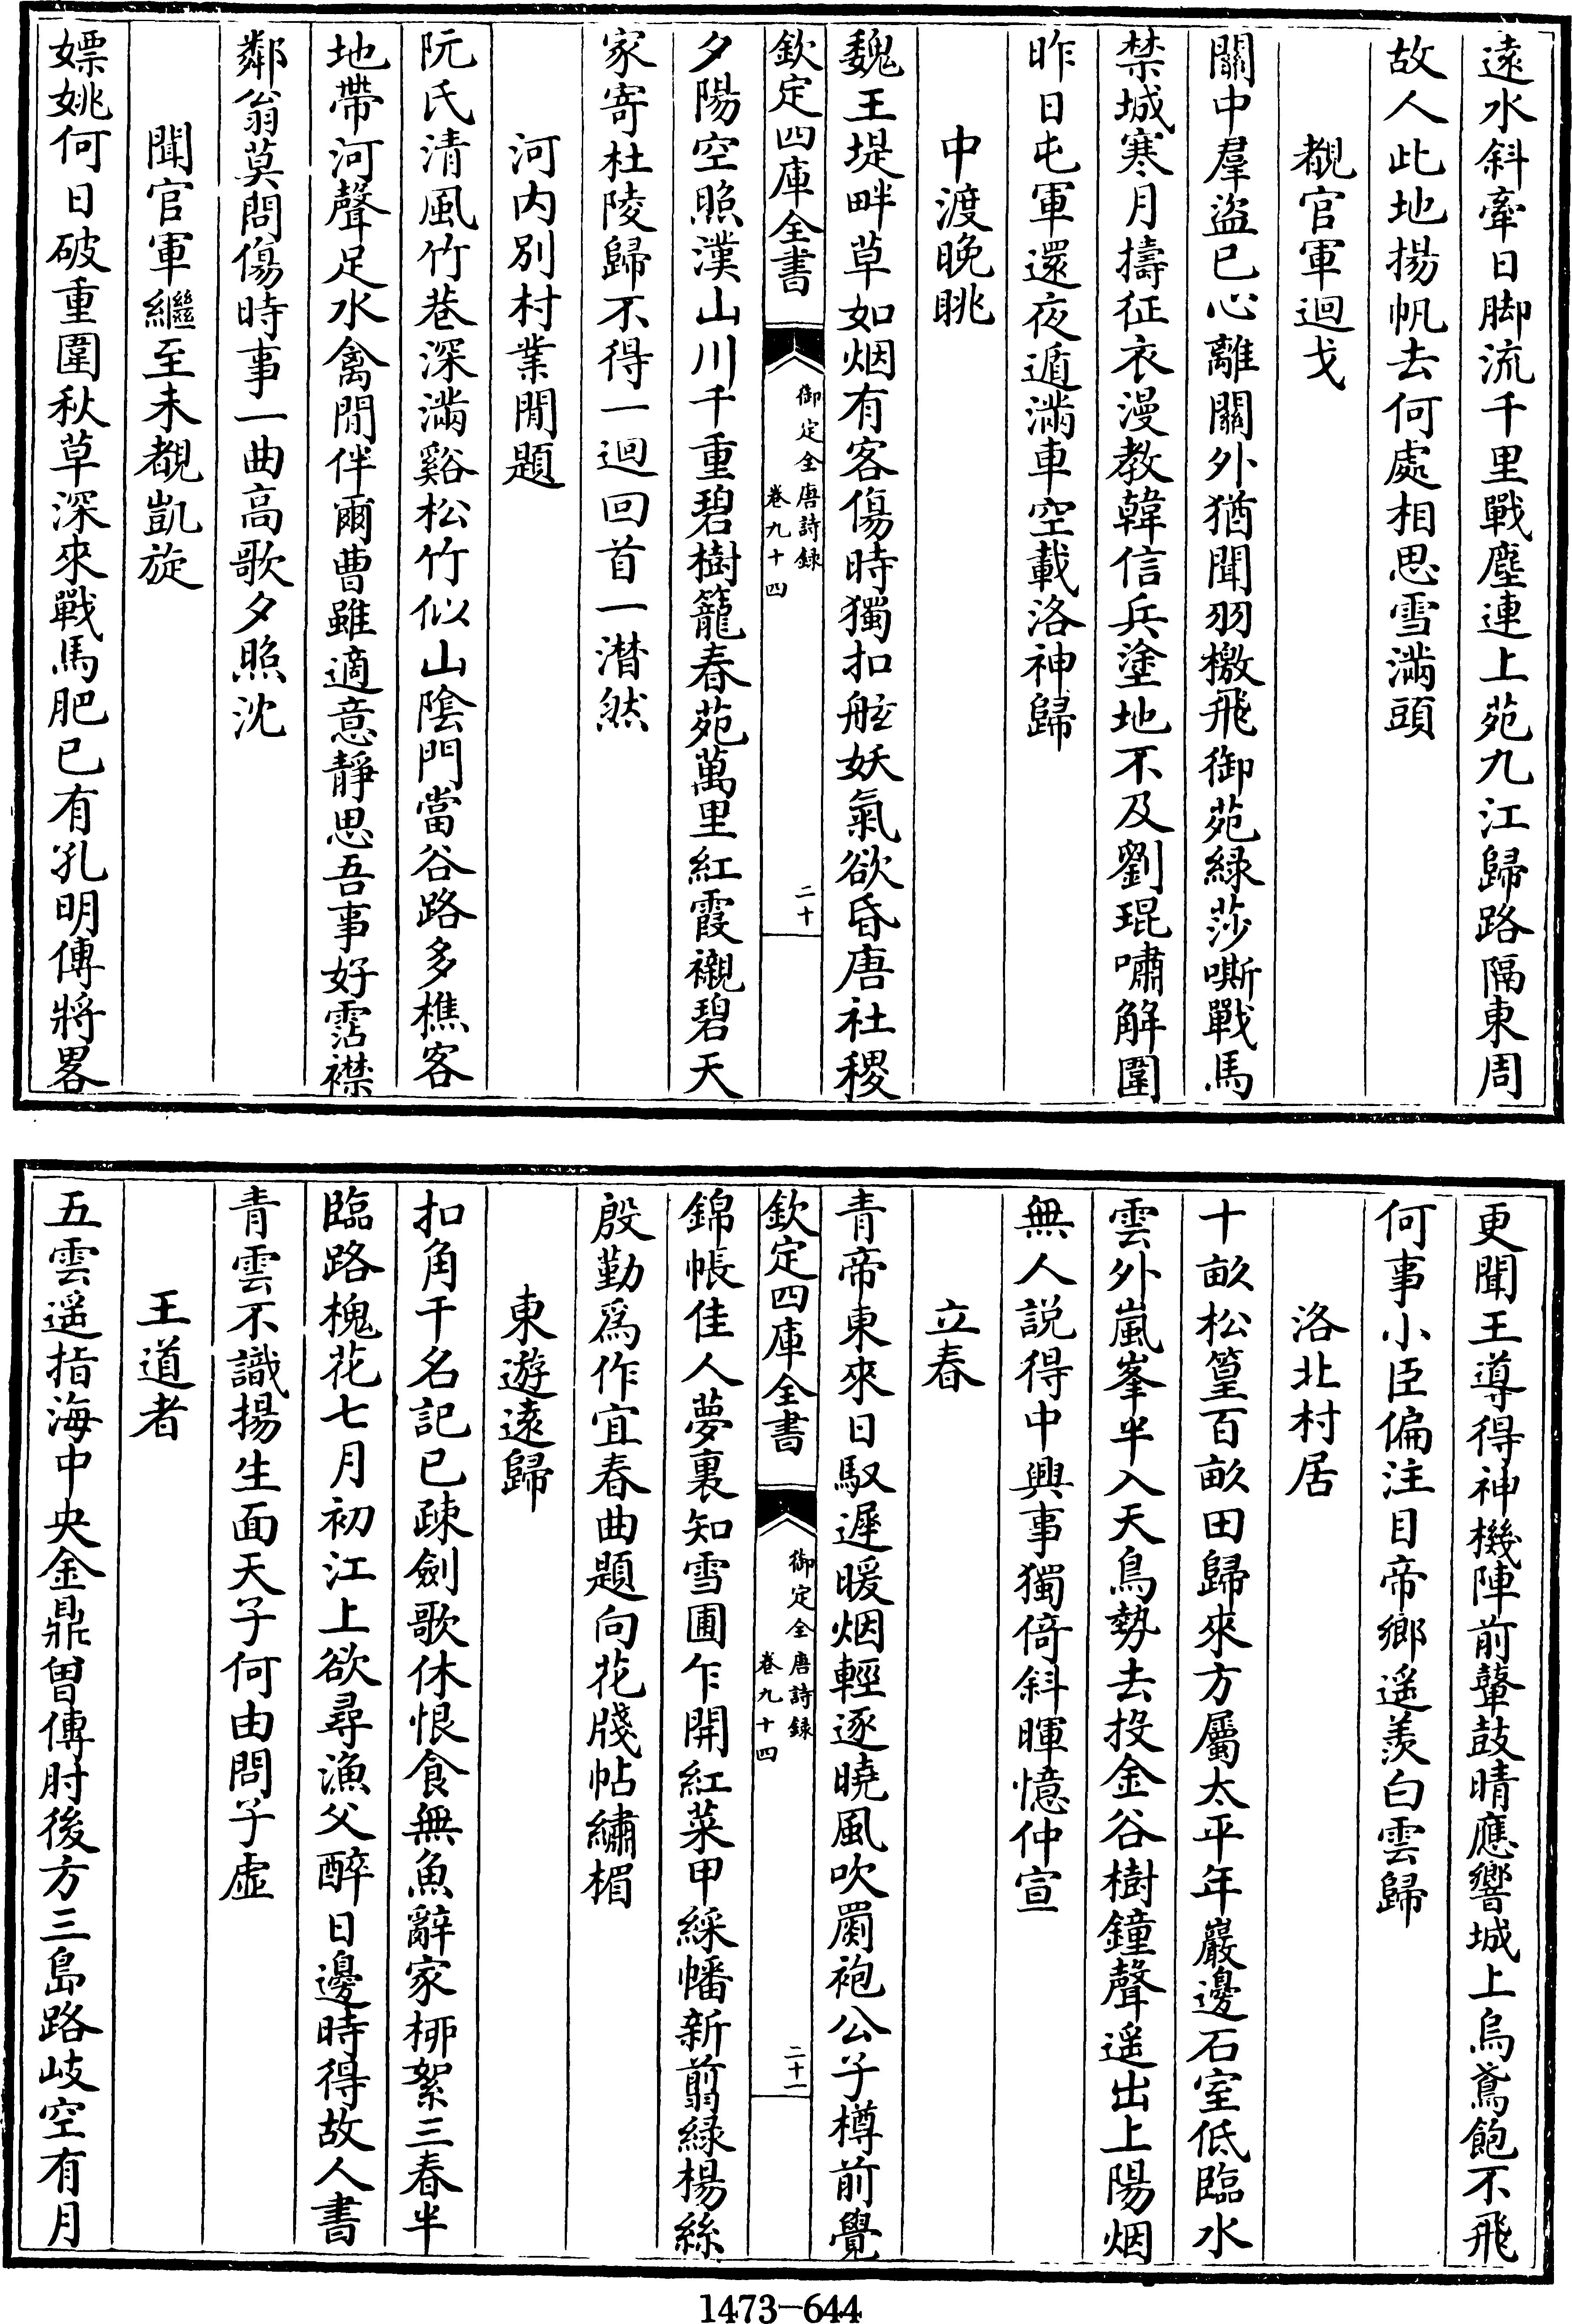 遠水斜牽日脚流千里戰塵連上苑九江歸路隔東周
故人此地揚帆去何處相思雪滿頭
覩官軍迴戈
關中羣盜已心離關外猶聞羽檄飛御苑緑莎嘶戰馬
禁城寒月擣征衣漫教韓信兵塗地不及劉琨嘯解圍
昨日屯軍還夜遁滿車空載洛神歸
中渡晚眺
魏王堤畔草如烟有客傷時獨扣舷妖氣欲昏唐社稷
欽定四庫全書
御定全唐詩録
卷九十四
二十
夕陽空照漢山川千重碧樹籠春苑萬里紅霞襯碧天
家寄杜陵歸不得一迴回首一潸然
河內別村業閒題
阮氏清風竹巷深滿谿松竹似山陰門當谷路多樵客
地帶河聲足水禽閒伴爾曹雖適意靜思吾事好霑襟
鄰翁莫問傷時事一曲高歌夕照沈
聞官軍繼至未覩凱旋
嫖姚何日破重圍秋草深來戰馬肥已有孔明傳將畧
更聞王導得神機陣前鼙鼓晴應響城上烏鳶飽不飛
何事小臣偏注目帝鄉遥羨白雲歸
洛北村居
十畝松篁百畝田歸來方屬太平年巖邊石室低臨水
雲外嵐峯半入天鳥勢去投金谷樹鐘聲遥出上陽烟
無人說得中興事獨倚斜暉憶仲宣
立春
青帝東來日馭遲暖烟輕逐曉風吹罽袍公子樽前覺
欽定四庫全書
御定全唐詩録
卷九十四
二十一
錦帳佳人夢裏知雪圃乍開紅菜甲綵幡新翦緑楊絲
殷勤爲作宜春曲題向花牋帖繡楣
東遊遠歸
扣角干名計已疎劍歌休恨食無魚辭家桺絮三春半
臨路槐花七月初江上欲尋漁父醉日邊時得故人書
青雲不識揚生面天子何由問子虛
王道者
五雲遥指海中央金鼎曾傳肘後方三島路岐空有月
1473-644